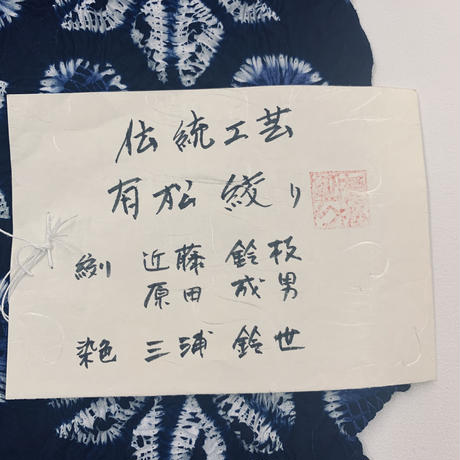 伝統工芸
有松絞り
絞り 近藤 鈴枝
原田 成男
染色 三浦 鈴世